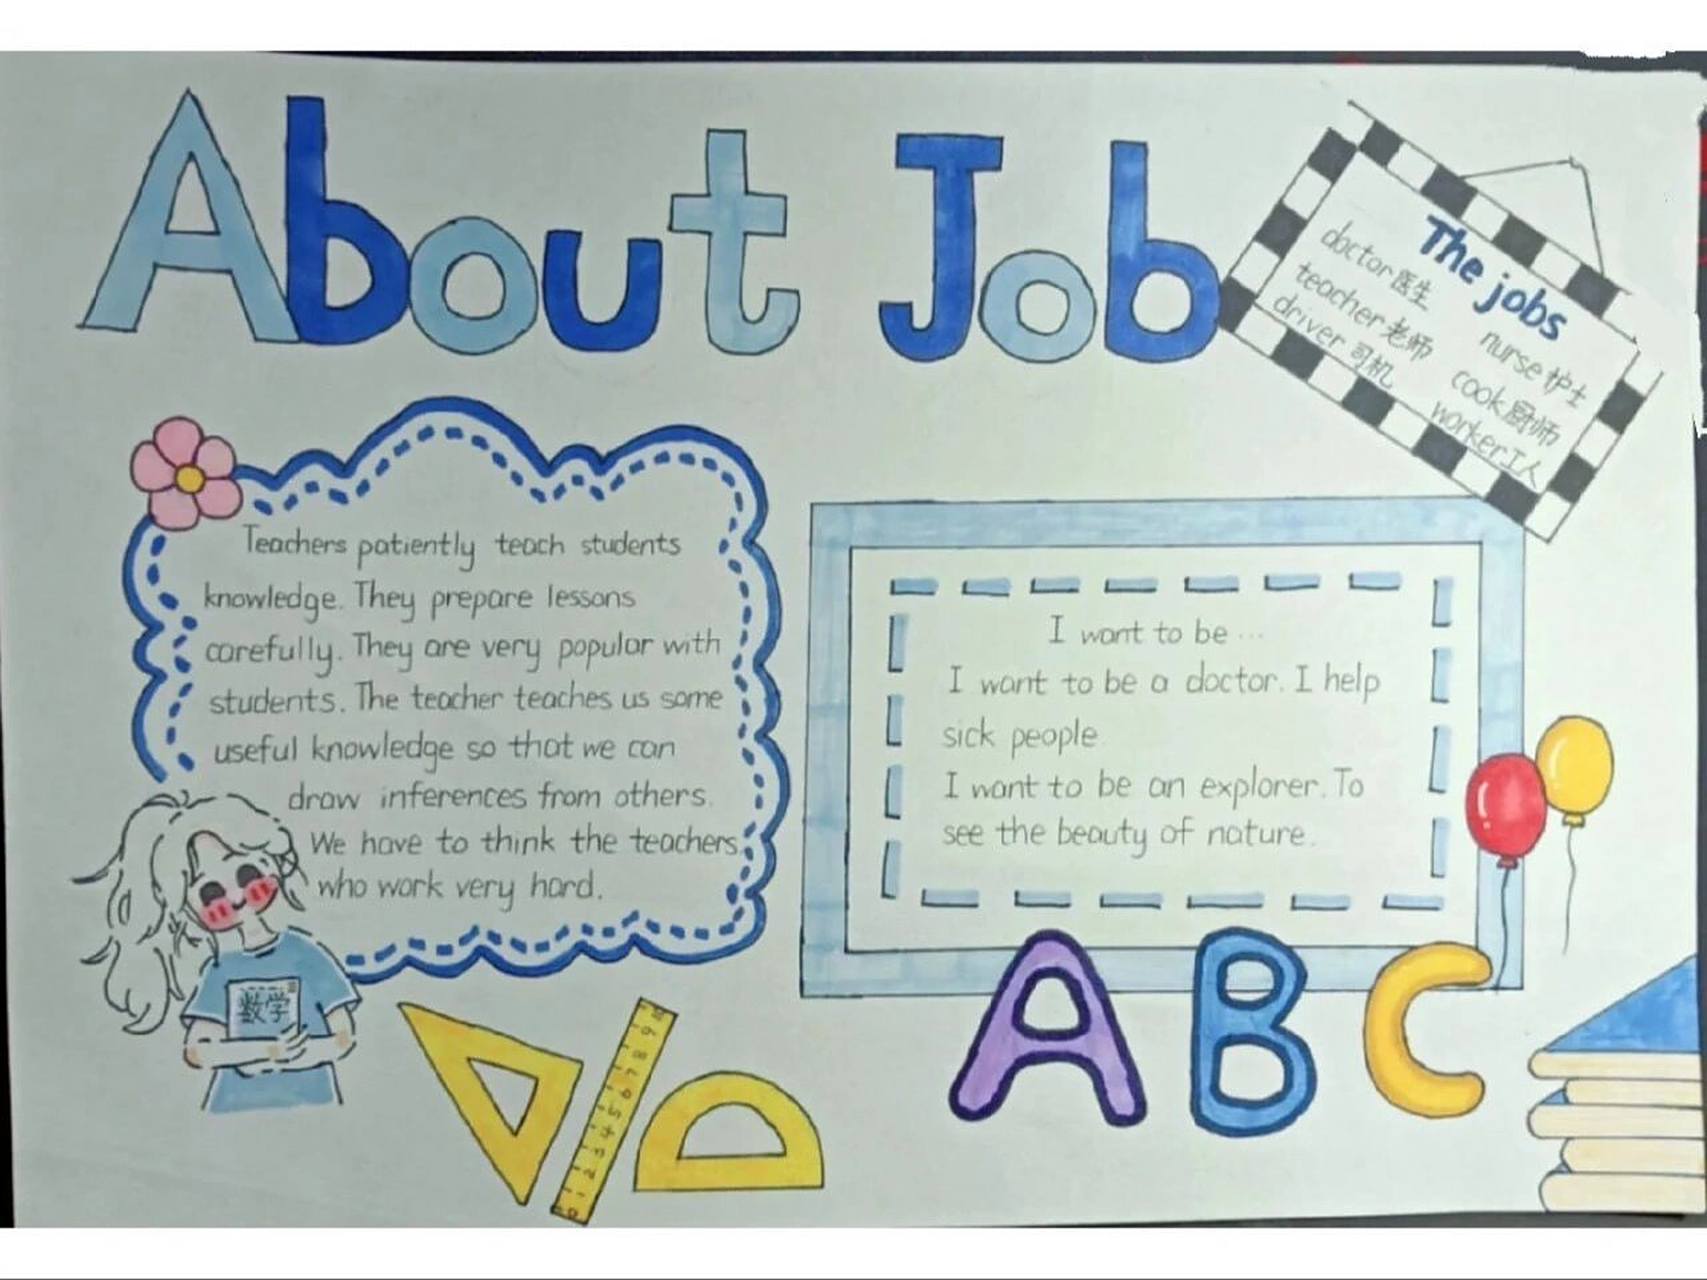 About Job
The jobs
doctor医生
teacher老师
driver司机
nurse护士
cook厨师
worker工人
Teachers patiently teach students
knowledge. They prepare lessons
carefully. They are very popular with
students. The teacher teaches us some
useful knowledge so that we can
draw inferences from others.
We have to think the teachers
who work very hard.
I want to be ...
I want to be a doctor. I help
sick people
I want to be an explorer. To
see the beauty of nature.
数学
0 1 2 3 4 5 6 7 8 9 10
ABC